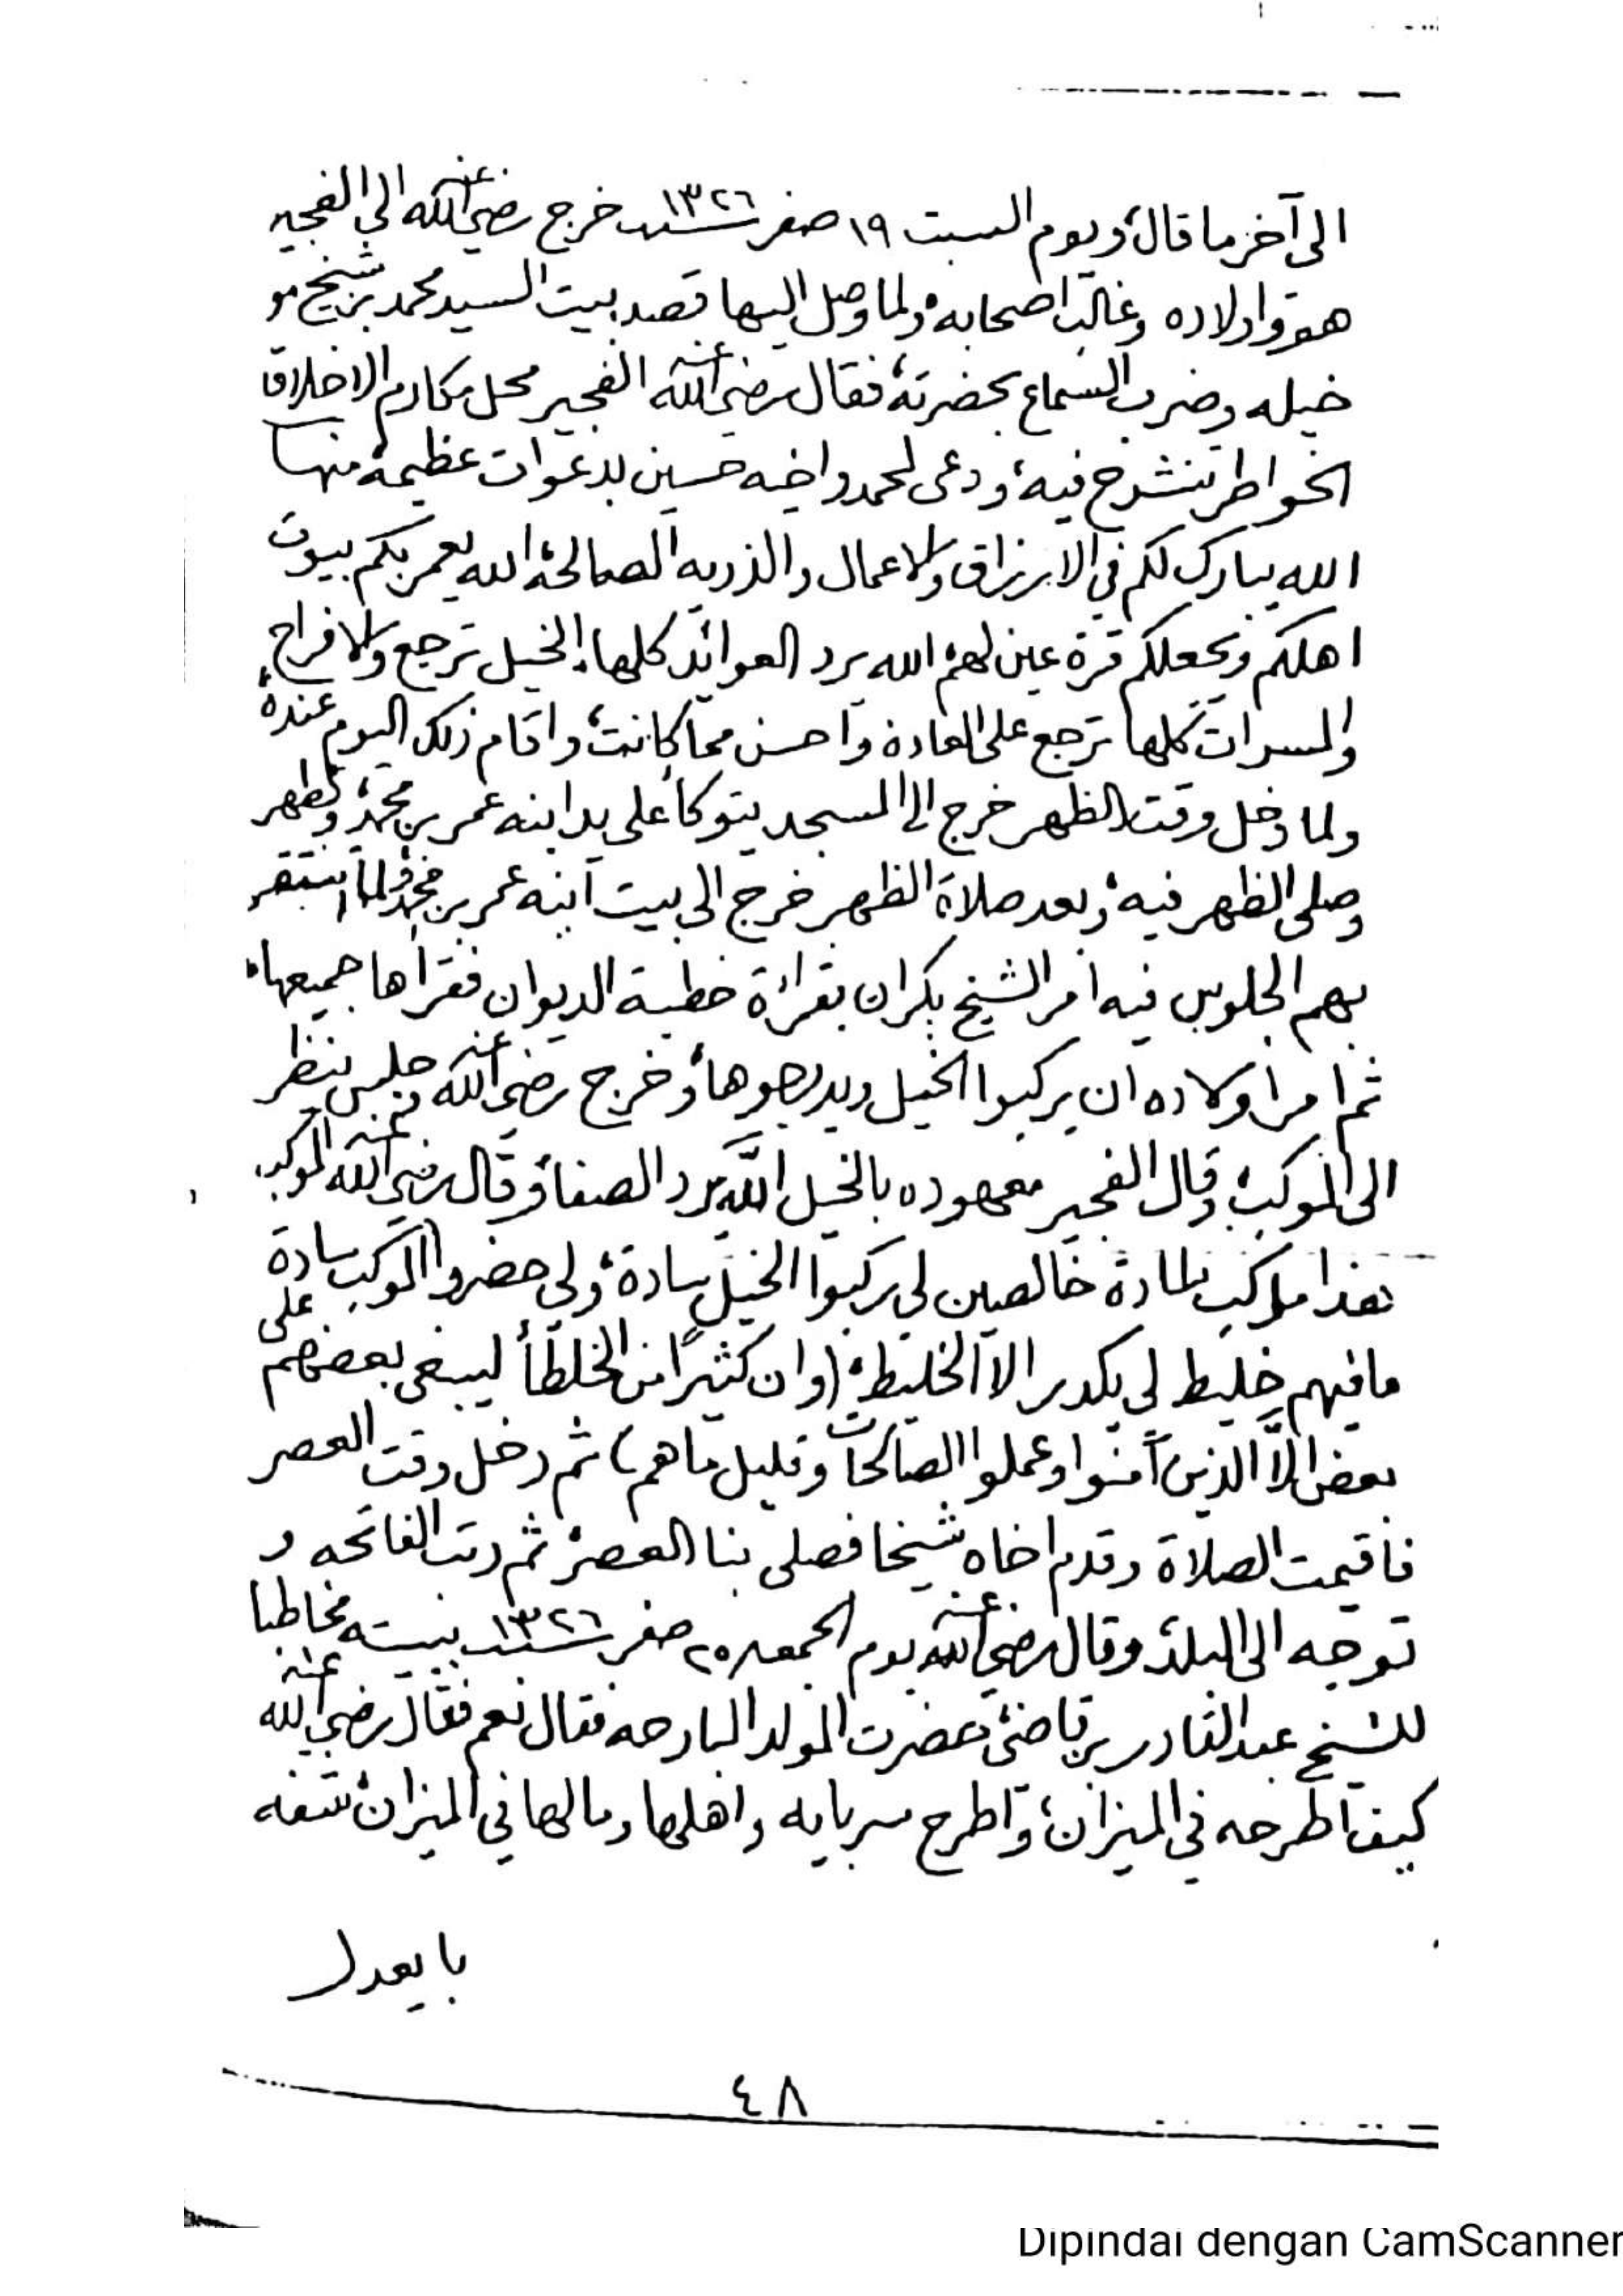 الى آخر ما قال، ويوم السبت ١٩ صفر سنة ١٣٢٦ خرج رضي الله عنه الى الفجير
هو واولاده وغالب اصحابه، ولما وصل اليها قصد بيت السيد محمد بن شيخ مو
خيله وضرب السماع بحضرته، فقال رضي الله عنه الفجير محل مكارم الاخلاق
الخواطر تنشرح فيه، ودعى لمحمد واخيه حسين بدعوات عظيمة منها
الله يبارك لكم في الارزاق والاعمال والذريه الصالحة، الله يعمر بكم بيوت
اهلكم ويجعلكم قرة عين لهم، الله يرد العوائد كلها، الخيل ترجع والافراح
والمسرات كلها ترجع على العادة واحسن مما كانت، واقام ذلك اليوم عنده
ولما دخل وقت الظهر خرج الى المسجد يتوكأ على يد ابنه عمر بن محمد، وتطهر
وصلى الظهر فيه، وبعد صلاة الظهر خرج الى بيت ابنه عمر بن محمد، ولما استقر
بهم الجلوس فيه أمر الشيخ بكران بقراءة خطبة الديوان فقرأها جميعها،
ثم امر اولاده ان يركبوا الخيل ويدرجوها، وخرج رضي الله عنه وجلس ينظر
الى الموكب، وقال الفجير معهوده بالخيل الله يرد الصفا، وقال رضي الله عنه الموكب
هذا ماركب للمادة خالصين لي ركبوا الخيل سادة، ولي حضروا الموكب سادة
مافيهم خليط لي يكدر الا الخليط، (وان كثيرًا من الخلطاء ليبغي بعضهم على
بعض إلاَّ الذين آمنوا وعملوا الصالحات وقليل ماهم) ثم دخل وقت العصر
فاقيمت الصلاة وقدم اخاه شيخا فصلى بنا العصر، ثم رتب الفاتحه و
توجه الى البلد، وقال رضي الله عنه يوم الجمعه ٢٥ صفر سنة ١٣٢٦ ببيته مخاطبا
للشيخ عبدالقادر بن قاضي، حضرت المولد البارحه فقال نعم فقال رضي الله عنه
كيف اطرحه في الميزان، واطرح سربايه واهلها ومالها في الميزان، شفه
با يعدل
٤٨
Dipindai dengan CamScanner